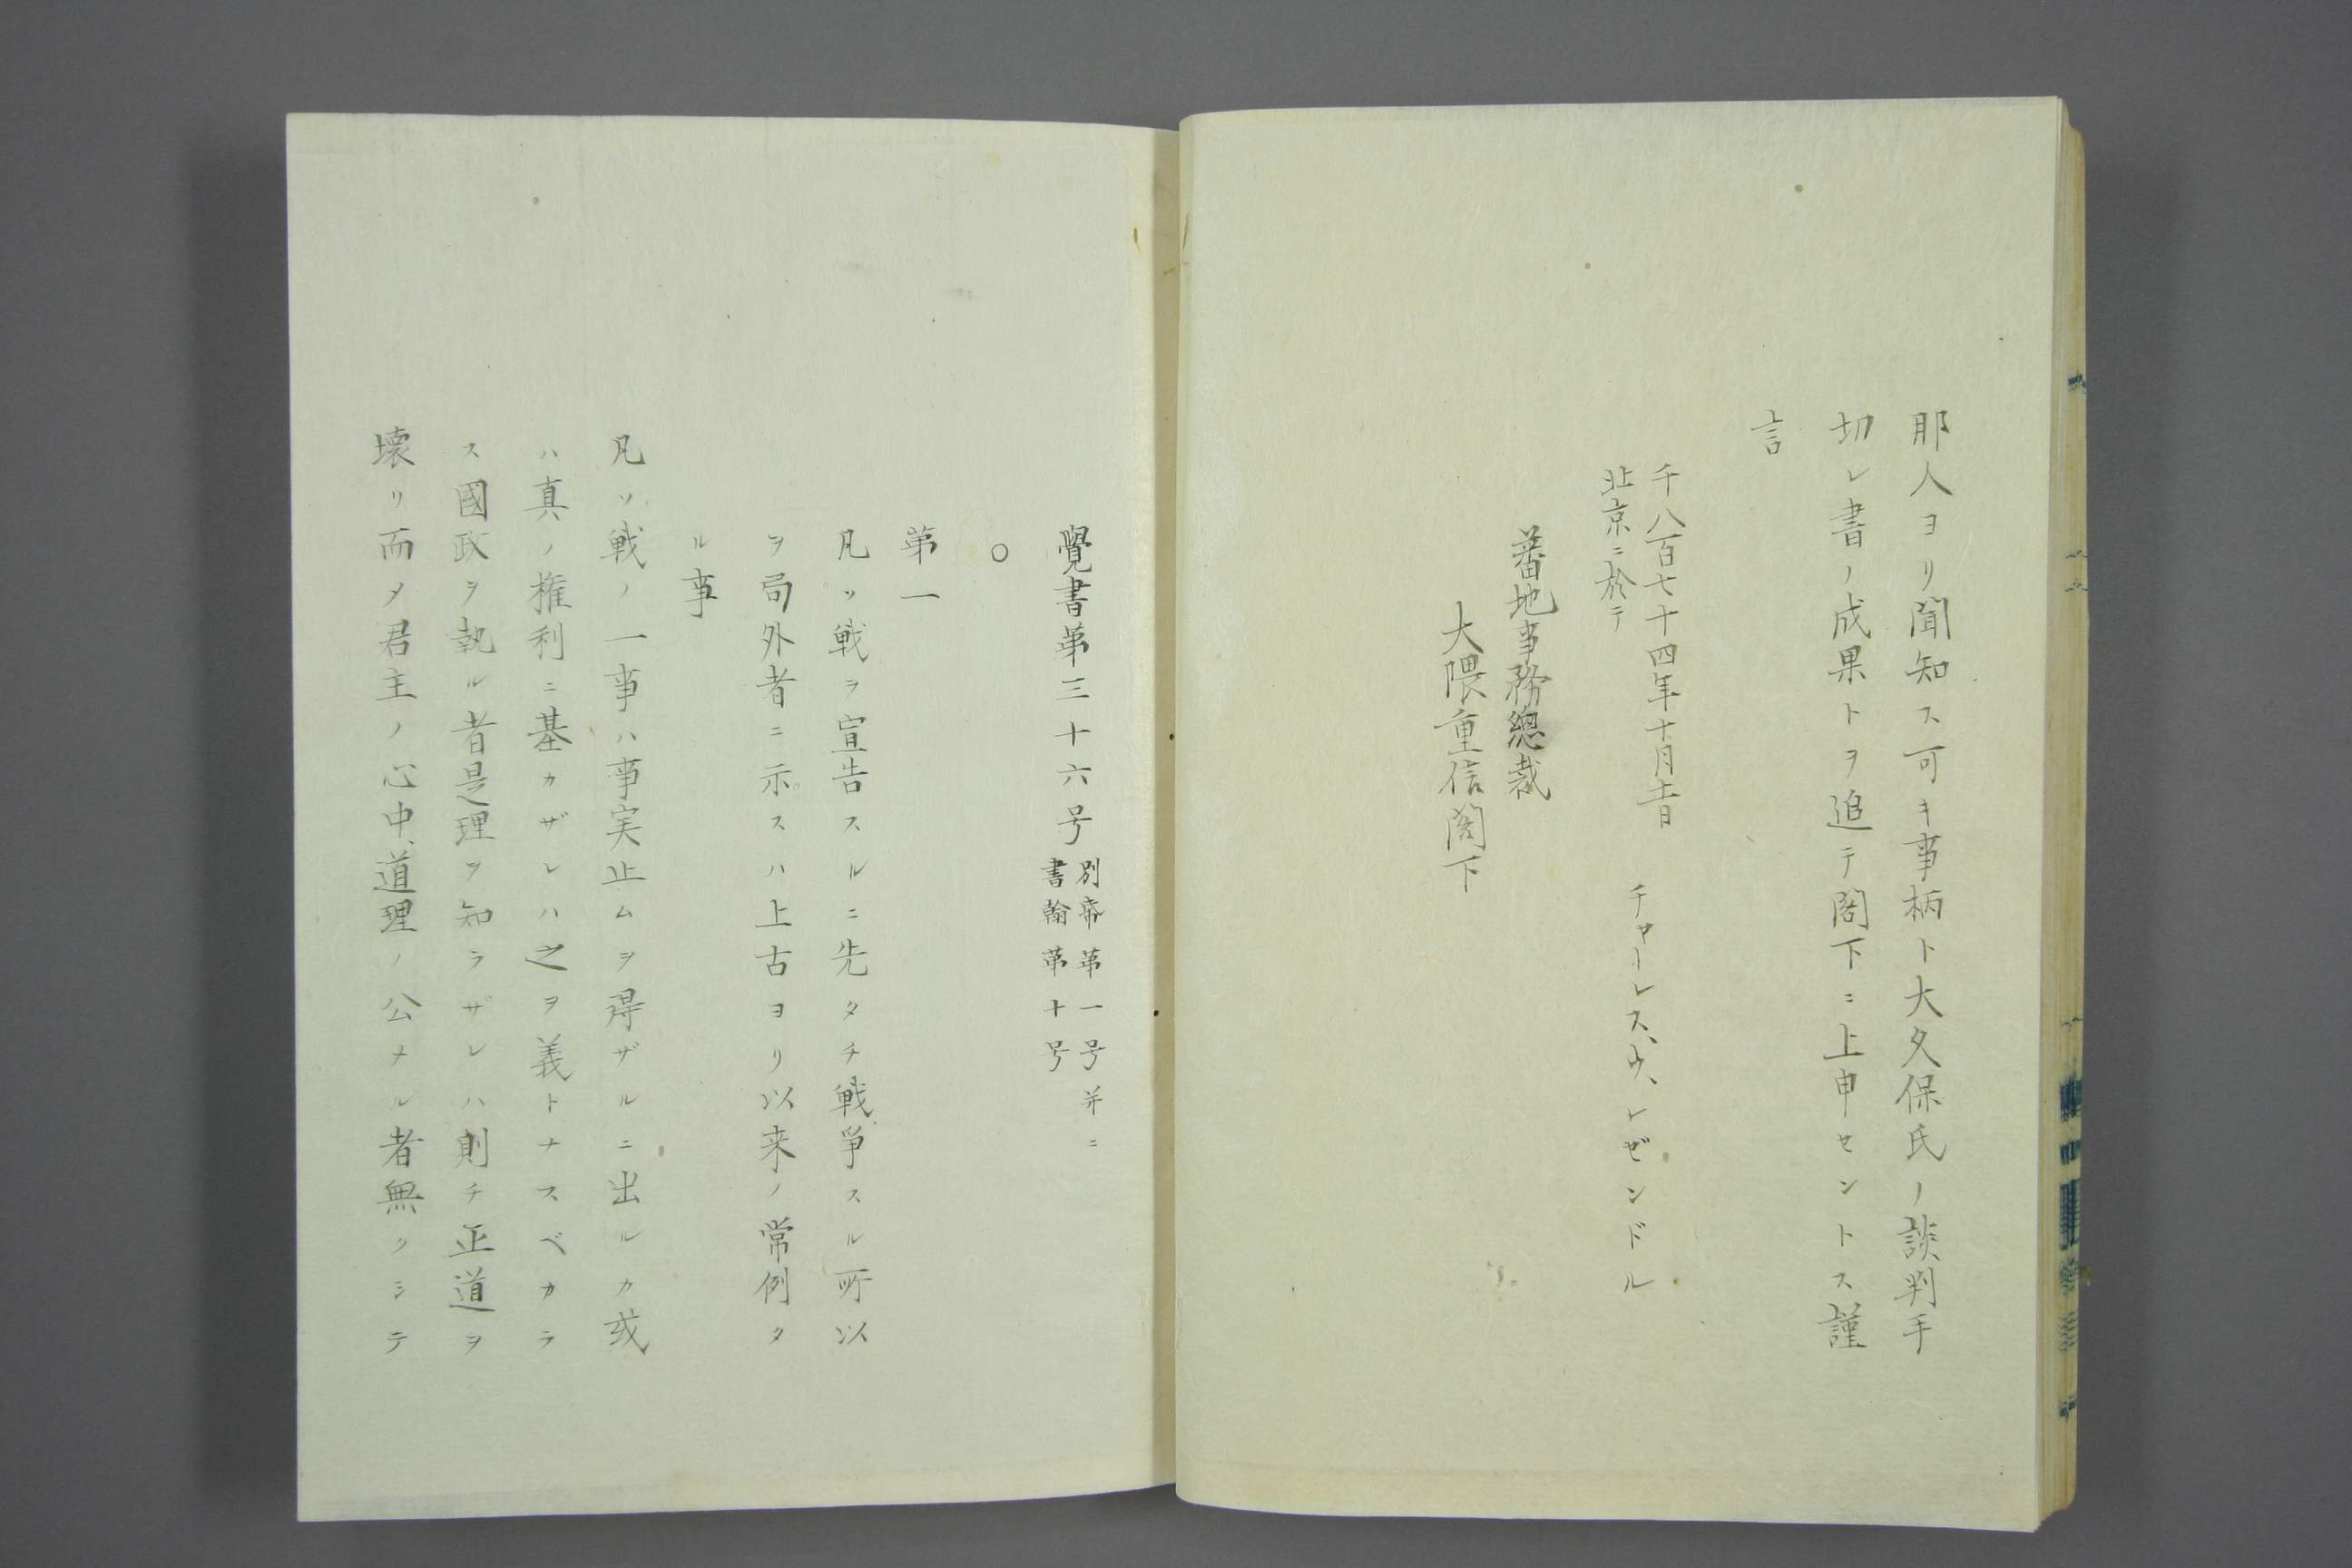 那人ヨリ聞知ス可キ事柄ト大久保氏ノ談判手
切レ書ノ成果トヲ追テ閣下ニ上申セントス謹
言
千八百七十四年十月十一日
北京ニ於テ
チャーレス、ウ、レゼンドル
蕃地事務總裁
大隈重信閣下
覺書第三十六号
別帋第一号并ニ
書翰第十号
○
第一
凡ソ戦ヲ宣告スルニ先タチ戦争スル所以
ヲ局外者ニ示スハ上古ヨリ以来ノ常例タ
ル事
凡ソ戦ノ一事ハ事実止ムヲ得ザルニ出ルカ或
ハ真ノ権利ニ基カザレハ之ヲ義トナスベカラ
ス國政ヲ執ル者是理ヲ知ラザレハ則チ正道ヲ
壊リ而メ君主ノ心中、道理ノ公ナル者無クシテ